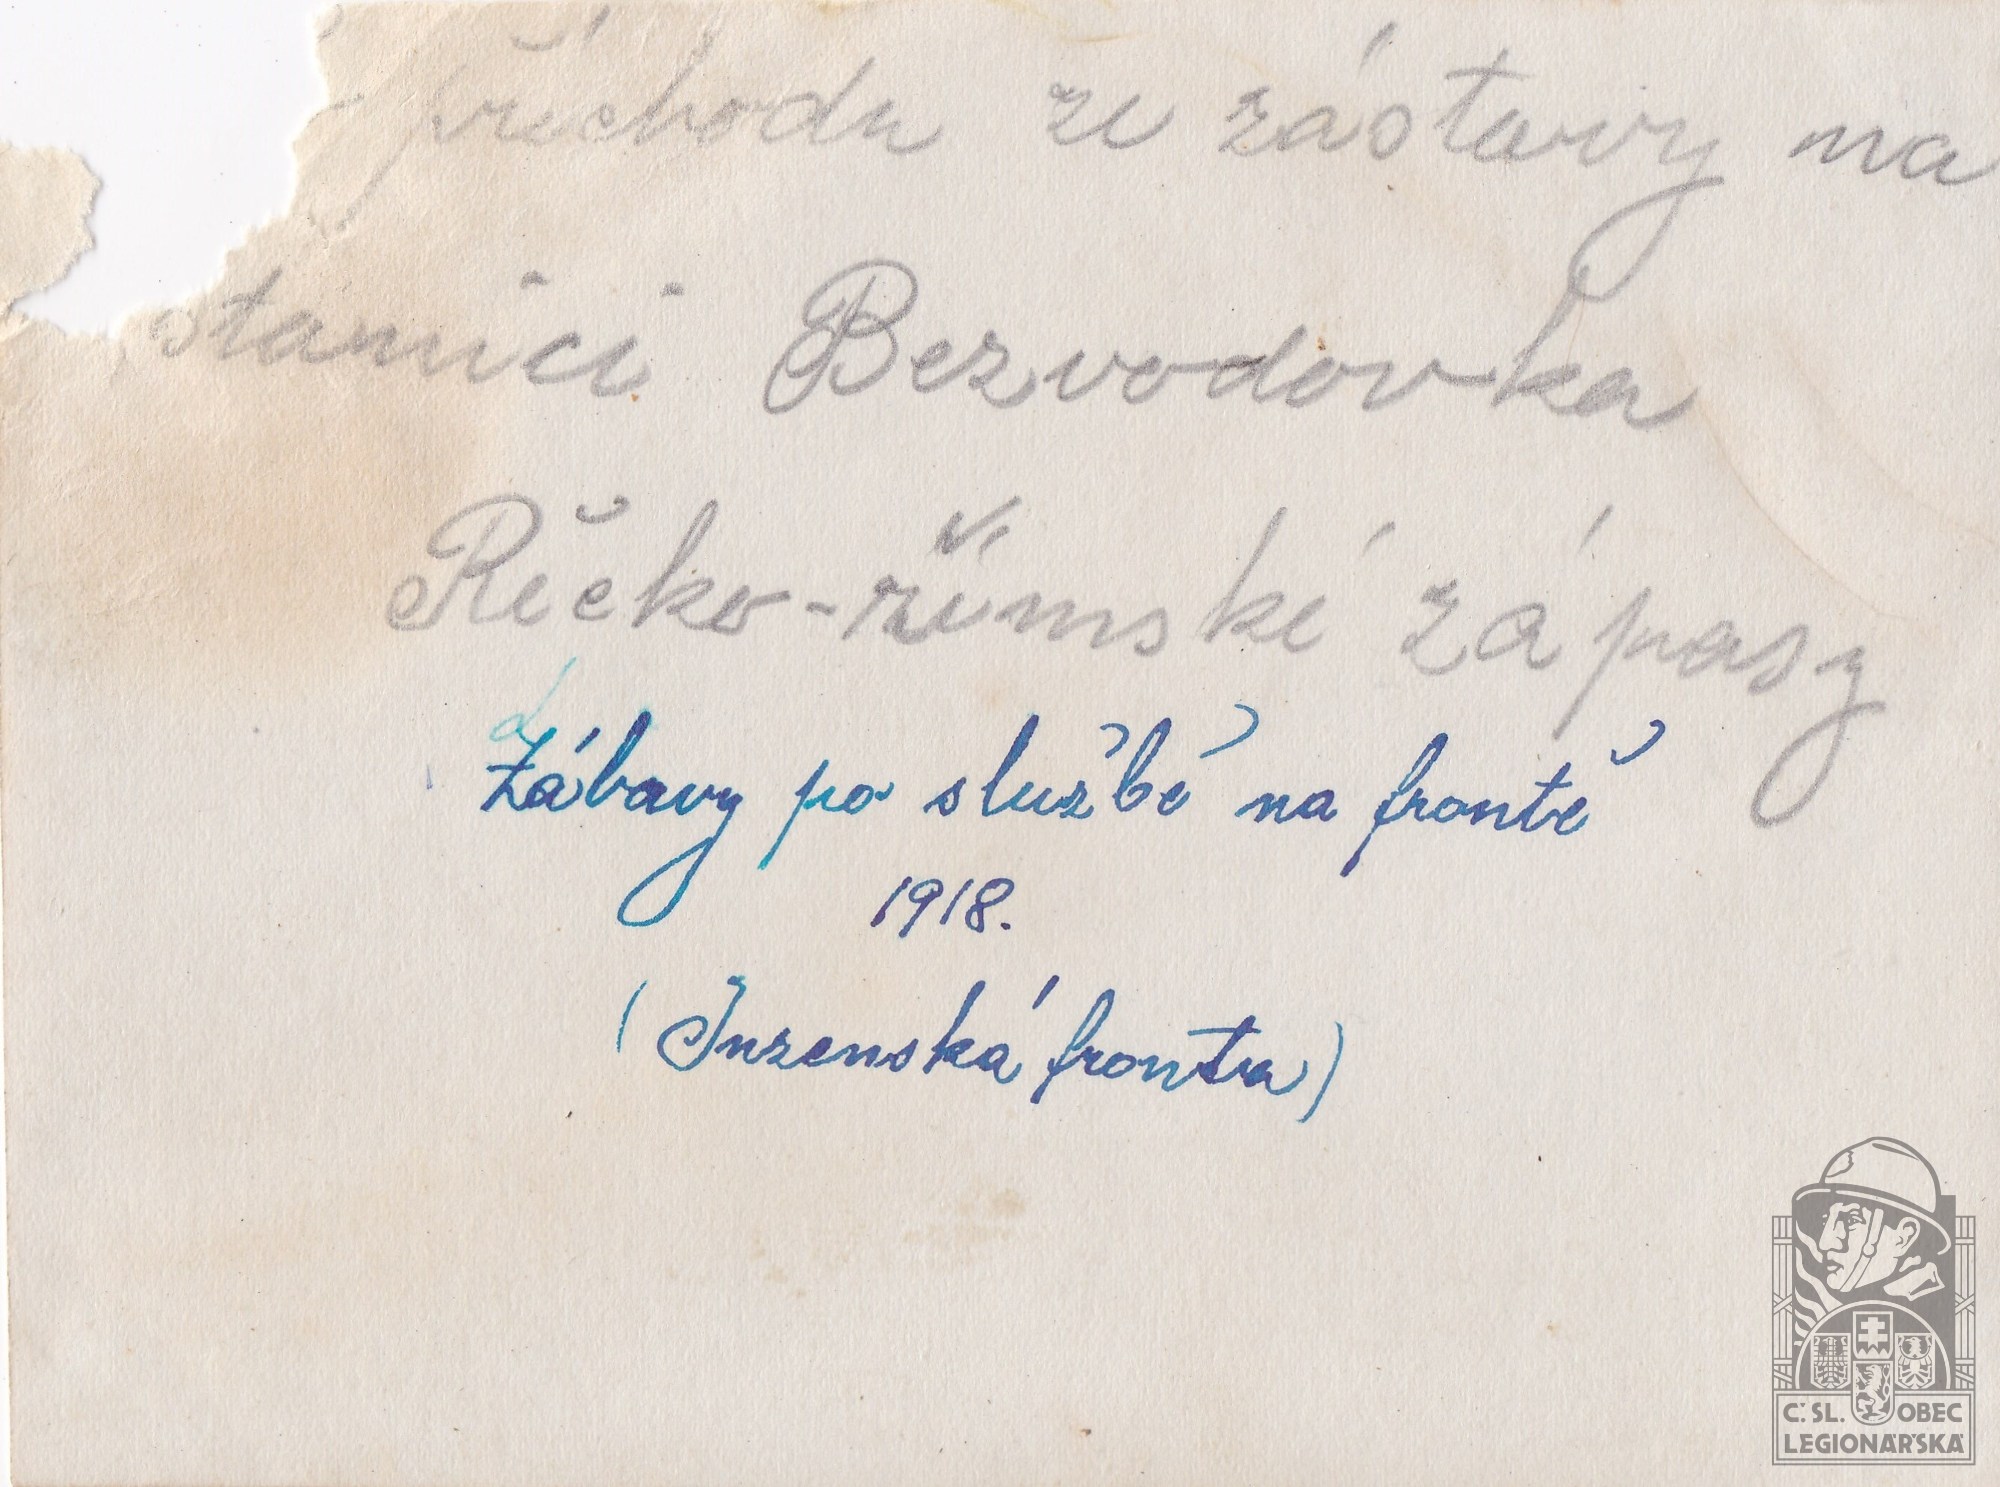 příchodu ze zástavy na
stanici Bezvodovka
Řečko-římské zápasy
Zábavy po službě na frontě
1918.
(Inzenská fronta)
Č.SL. OBEC
LEGIONÁŘSKÁ